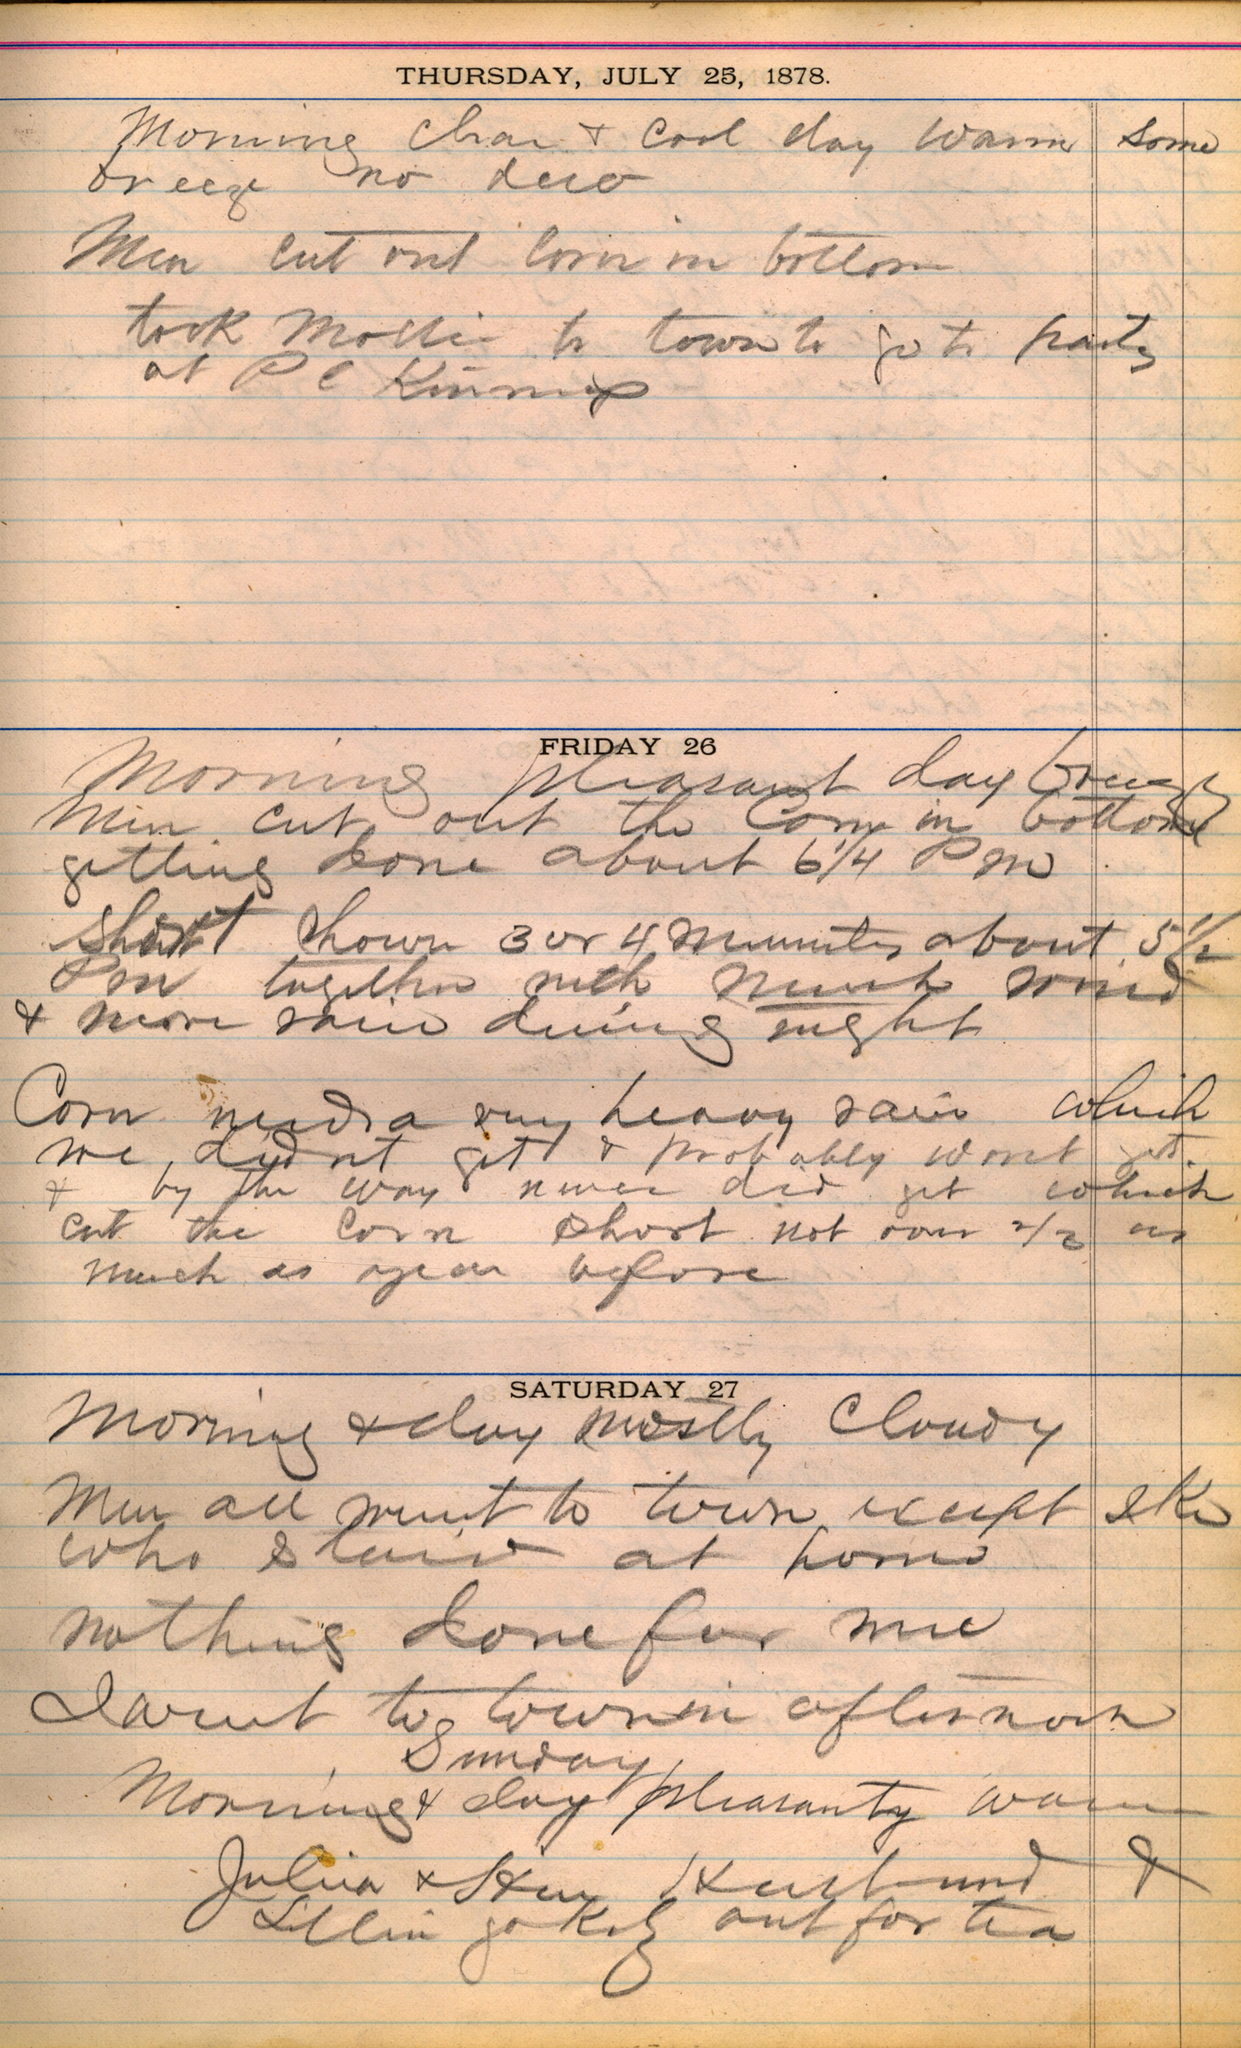 THURSDAY, JULY 25, 1878.
Morning clear & cool day warm some
breeze no dew
Men cut out corn in bottom
took Mollie to town to go to party
at P C
FRIDAY 26
Morning pleasant day breezy
Men cut out the Corn in bottom
getting done about 6 1/4 P m
Short shower 3 or 4 minutes about 5 1/2
Pm together with much wind
& more rain during night
Corn needs a very heavy rain which
we didnt get & probably wont get
& by the way never did get which
cut the corn short not over 1/2 as
much as year before
SATURDAY 27
Morning & day mostly Cloudy
Men all went to town except Ike
who staid at home
nothing done for me
I went to town in afternoon
Sunday
Morning & day pleasantly warm
Julia & Her Husband &
Lillie out for tea